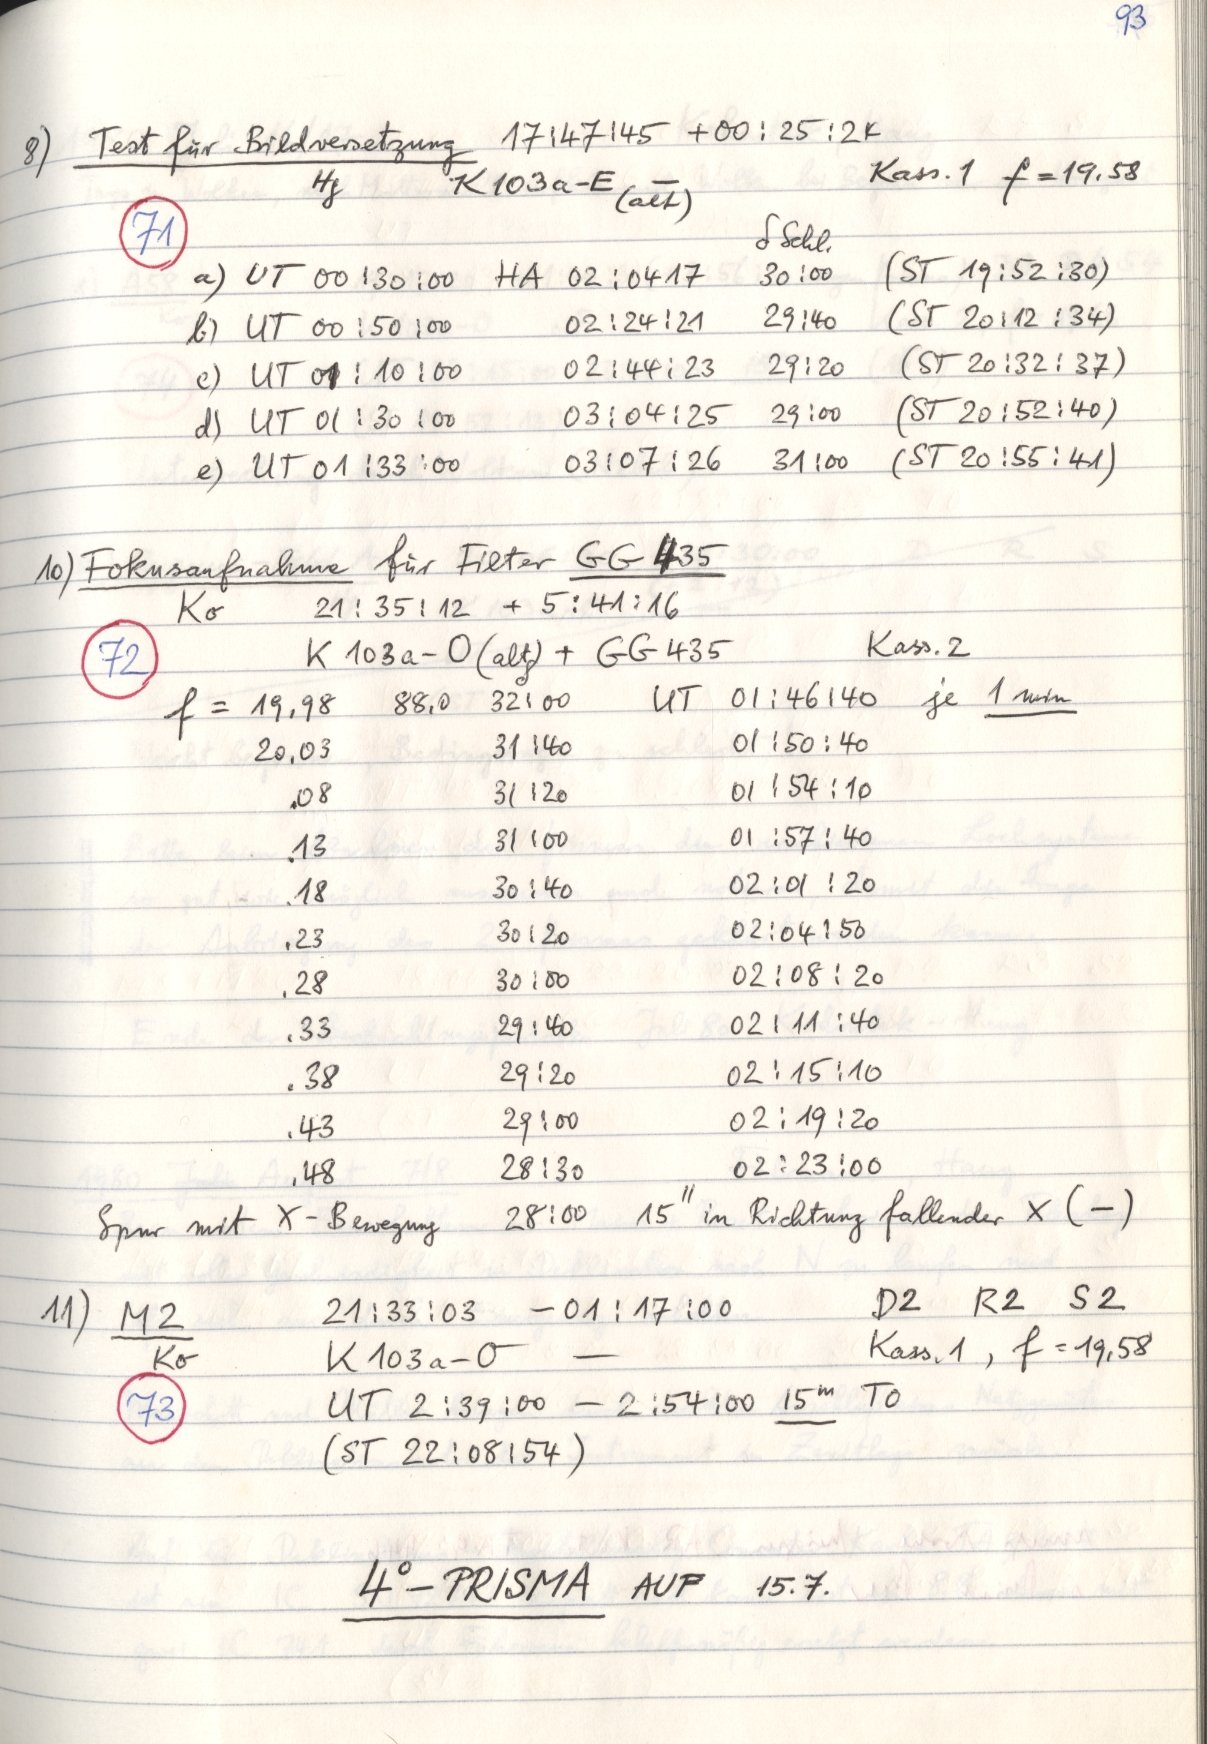 93
8) Test für Bildversetzung 17:47:45 +00:25:24
Hg K103a-E (alt) — Kass.1 f=19.58
71
δ Schl.
a) UT 00:30:00 HA 02:0417 30:00 (ST 19:52:30)
b) UT 00:50:00 02:24:21 29:40 (ST 20:12:34)
c) UT 01:10:00 02:44:23 29:20 (ST 20:32:37)
d) UT 01:30:00 03:04:25 29:00 (ST 20:52:40)
e) UT 01:33:00 03:07:26 31:00 (ST 20:55:41)
10) Fokusaufnahme für Filter GG 435
Ko 21:35:12 + 5:41:16
72 K 103a-O (alt) + GG 435 Kass.2
f = 19,98 88,0 32:00 UT 01:46:40 je 1 min
20,03 31:40 01:50:40
.08 31:20 01:54:10
.13 31:00 01:57:40
.18 30:40 02:01:20
.23 30:20 02:04:50
.28 30:00 02:08:20
.33 29:40 02:11:40
.38 29:20 02:15:10
.43 29:00 02:19:20
.48 28:30 02:23:00
Spur mit X-Bewegung 28:00 15" in Richtung fallender X (-)
11) M2 21:33:03 -01:17:00 D2 R2 S2
Ko K 103a-O — Kass.1, f=19,58
73 UT 2:39:00 - 2:54:00 15m TO
(ST 22:08:54)
4°-PRISMA AUF 15.7.